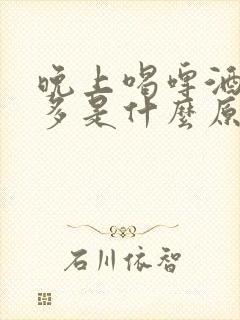 晚上喝啤酒
多是什麼原
石川依智